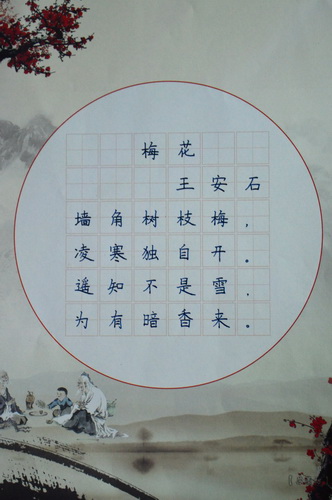 梅花
王安石
墙角树枝梅，
凌寒独自开。
遥知不是雪.
为有暗香来。